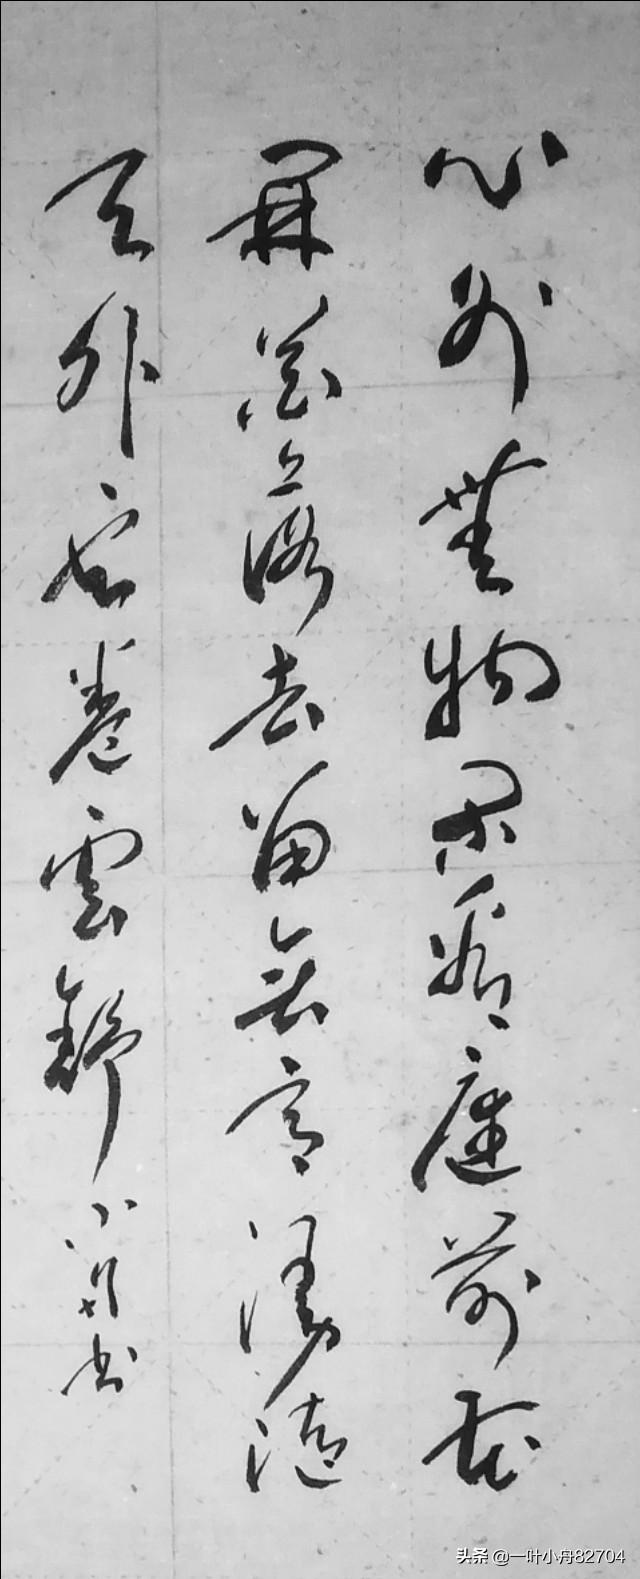 心外無物闲看庭前花
開花落去留无意漫随
天外云卷雲舒 小舟书
头条 @一叶小舟82704